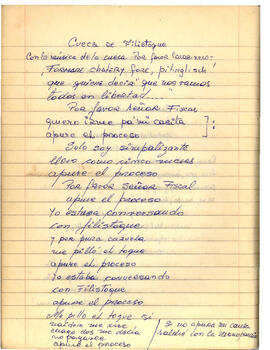 CUECA DE FILISTOQUE
Con la música de la cueca Por favor
que quiere decir que nos vamos
todos en libertad...
Por favor Señor Fiscal
quiero irme pa'mi casita
apure el proceso
Solo soy simpatizante
llevo como cinco meses
apure el proceso
Por favor Señor Fiscal
apure el proceso
Yo estaba conversando
con filistoque
y por pura casuela
me pilló el toque
apure el proceso
Yo estaba conversando
con Filistoque
apure el proceso
Me pilló el toque sí
apure el proceso
Si no apura mi causa
saldré con la